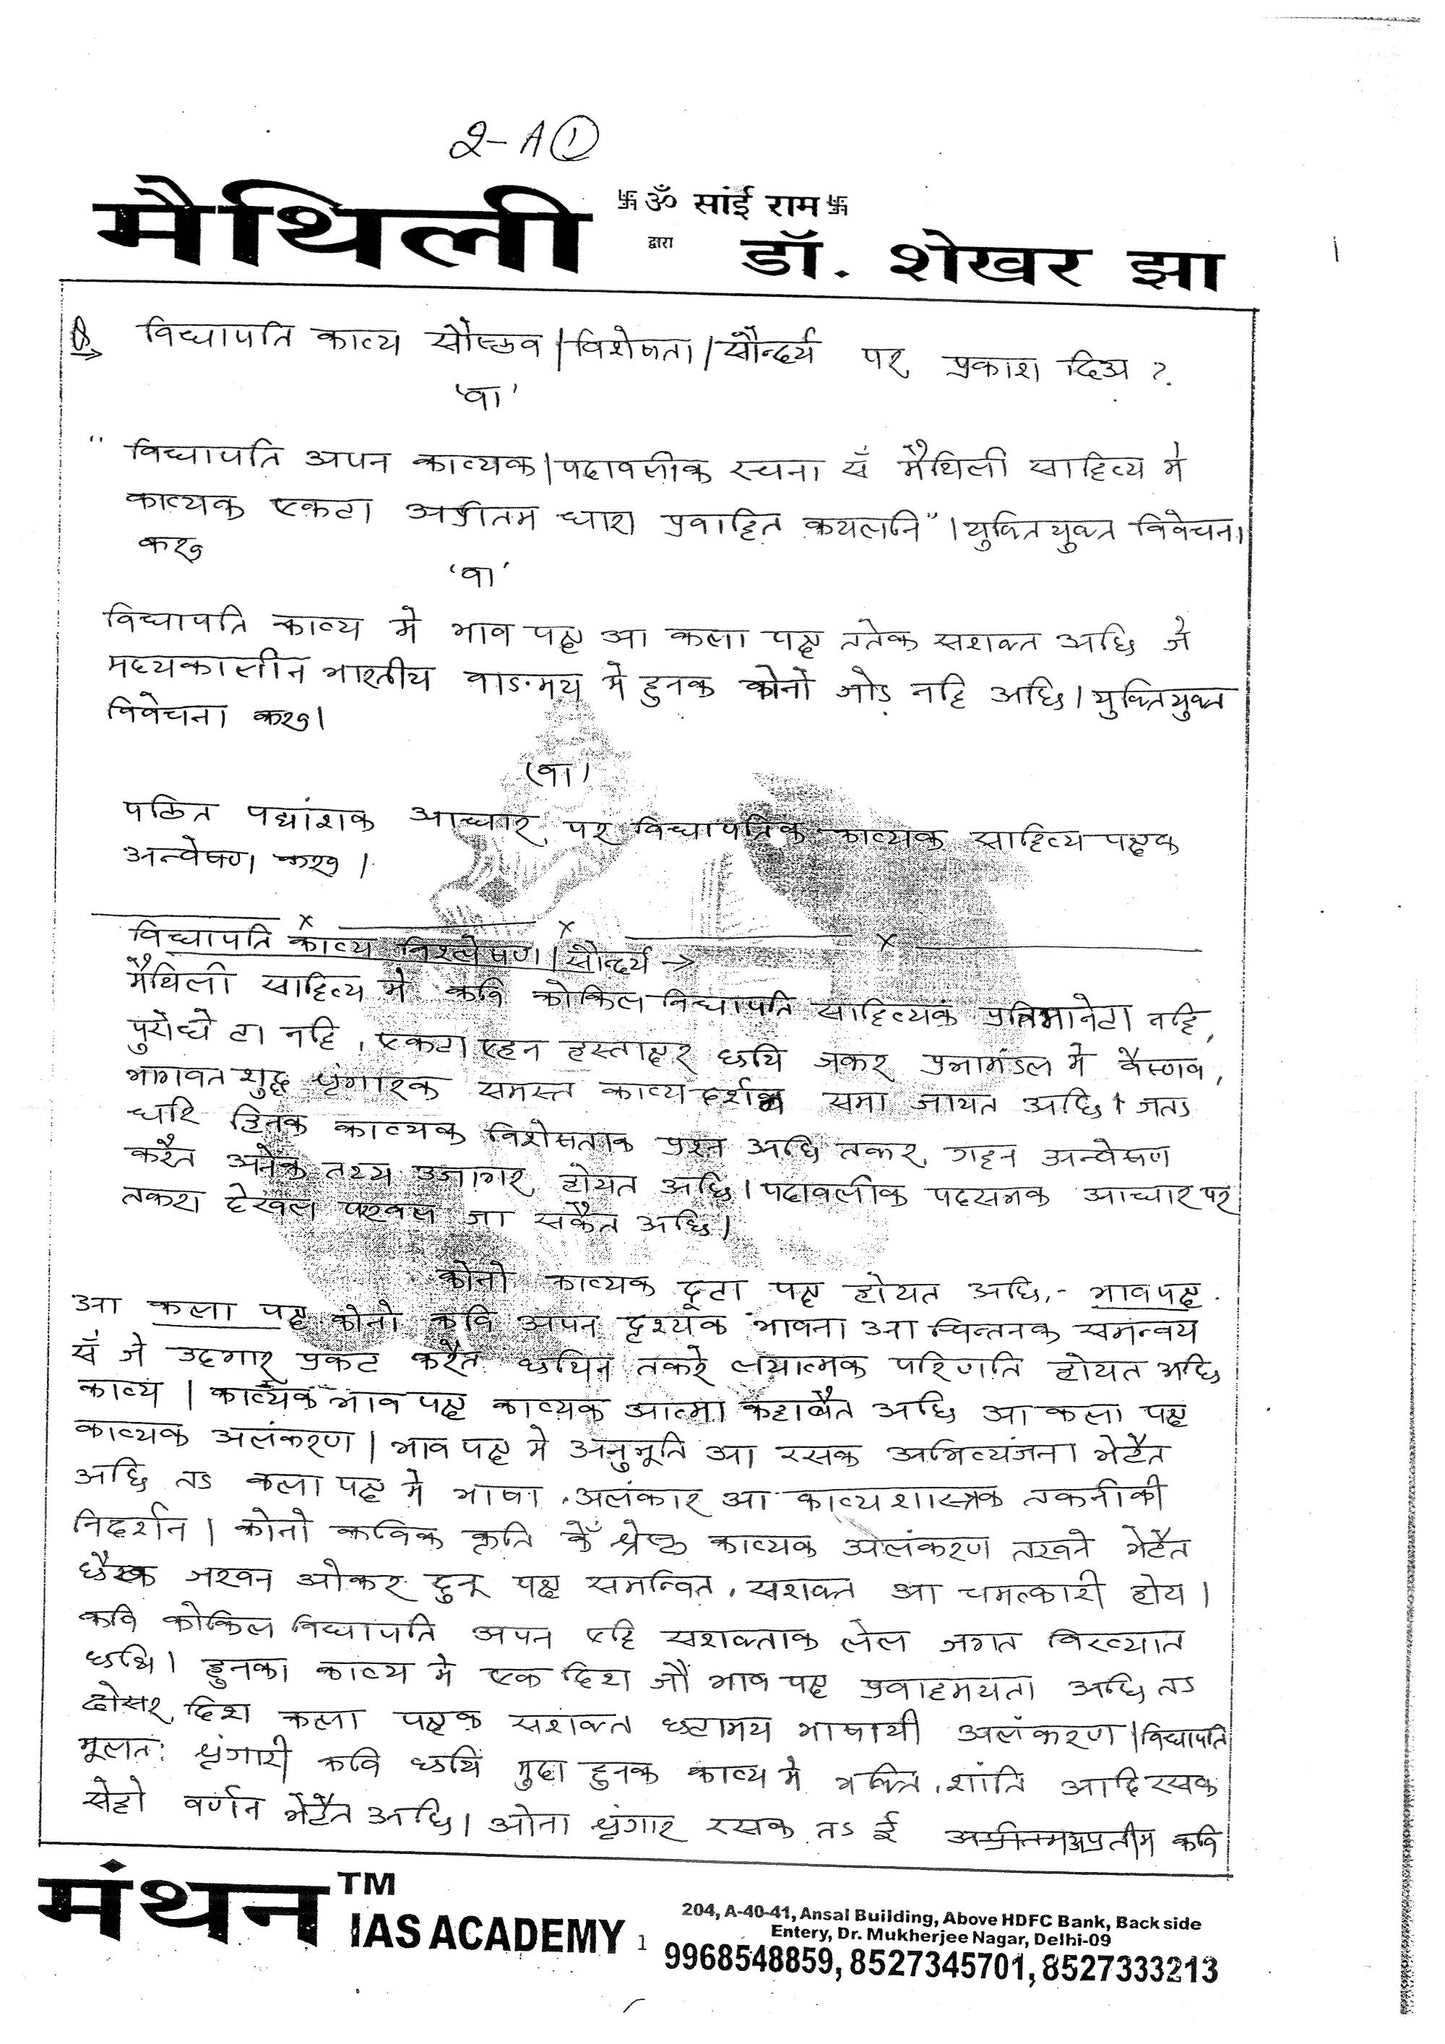 2-A ①
मैथिली
卐 ॐ सांई राम 卐
द्वारा
डॉ. शेखर झा
विद्यापति काव्य सौष्ठव / विशेषता / सौन्दर्य पर प्रकाश दिअ ?
'वा'
" विद्यापति अपन काव्यक / पदावलीक रचना सँ मैथिली साहित्य मे
काव्यक एकटा अप्रीतम धारा प्रवाहित कयलनि" । युक्तियुक्त विवेचना
करू
'वा'
विद्यापति काव्य मे भाव पक्ष आ कला पक्ष ततेक सशक्त अछि जे
मध्यकालीन भारतीय वाङमय मे हुनक कोनो जोड़ नहि अछि। युक्तियुक्त
विवेचना करू।
(वा)
पठित पद्यांशक आधार पर विद्यापतिक काव्यक साहित्य पक्षक
अन्वेषण करू ।
विद्यापति काव्य विश्लेषण / सौन्दर्य →
मैथिली साहित्य मे कवि कोकिल विद्यापति साहित्यक प्रतिमानेटा नहि,
पुरोधे टा नहि, एकटा एहन हस्ताक्षर छथि जकर प्रभामंडल मे वैष्णव,
भागवत शुद्ध श्रृंगारक समस्त काव्य दर्शन समा जायत अछि। जतऽ
धरि हिनक काव्यक विशेषताक प्रश्न अछि तकर गहन अन्वेषण
करैत अनेक तथ्य उजागर होयत अछि। पदावलीक पदसभक आधार पर
तकरा देखल परखल जा सकैत अछि।
कोनो काव्यक दूटा पक्ष होयत अछि,- भावपक्ष
आ कला पक्ष कोनो कवि अपन दृश्यक भावना आ चिन्तनक समन्वय
सँ जे उदगार प्रकट करैत छथिन तकरे लयात्मक परिणति होयत अछि
काव्य । काव्यक भाव पक्ष काव्यक आत्मा कहाबैत अछि आ कला पक्ष
काव्यक अलंकरण । भाव पक्ष मे अनुभूति आ रसक अभिव्यंजना भेटैत
अछि तऽ कला पक्ष मे भाषा, अलंकार आ काव्यशास्त्रक तकनीकी
निदर्शन । कोनो कविक कृति केँ श्रेष्ठ काव्यक अलंकरण तखने भेटैत
छैक जखन ओकर दुनू पक्ष समन्वित, सशक्त आ चमत्कारी होय ।
कवि कोकिल विद्यापति अपन एहि सशक्ताक लेल जगत विख्यात
छथि। हुनका काव्य मे एक दिश जौं भाव पक्ष प्रवाहमयता अछि तऽ
दोसर दिश कला पक्षक सशक्त छटामय भाषायी अलंकरण । विद्यापति
मूलतः श्रृंगारी कवि छथि मुदा हुनक काव्य मे भक्ति, शांति आदि रसक
सेहो वर्णन भेटैत अछि। ओना श्रृंगार रसक तऽ ई अप्रतीम कवि
मंथन TM
IAS ACADEMY
1
204, A-40-41, Ansal Building, Above HDFC Bank, Back side
Entery, Dr. Mukherjee Nagar, Delhi-09
9968548859, 8527345701, 8527333213